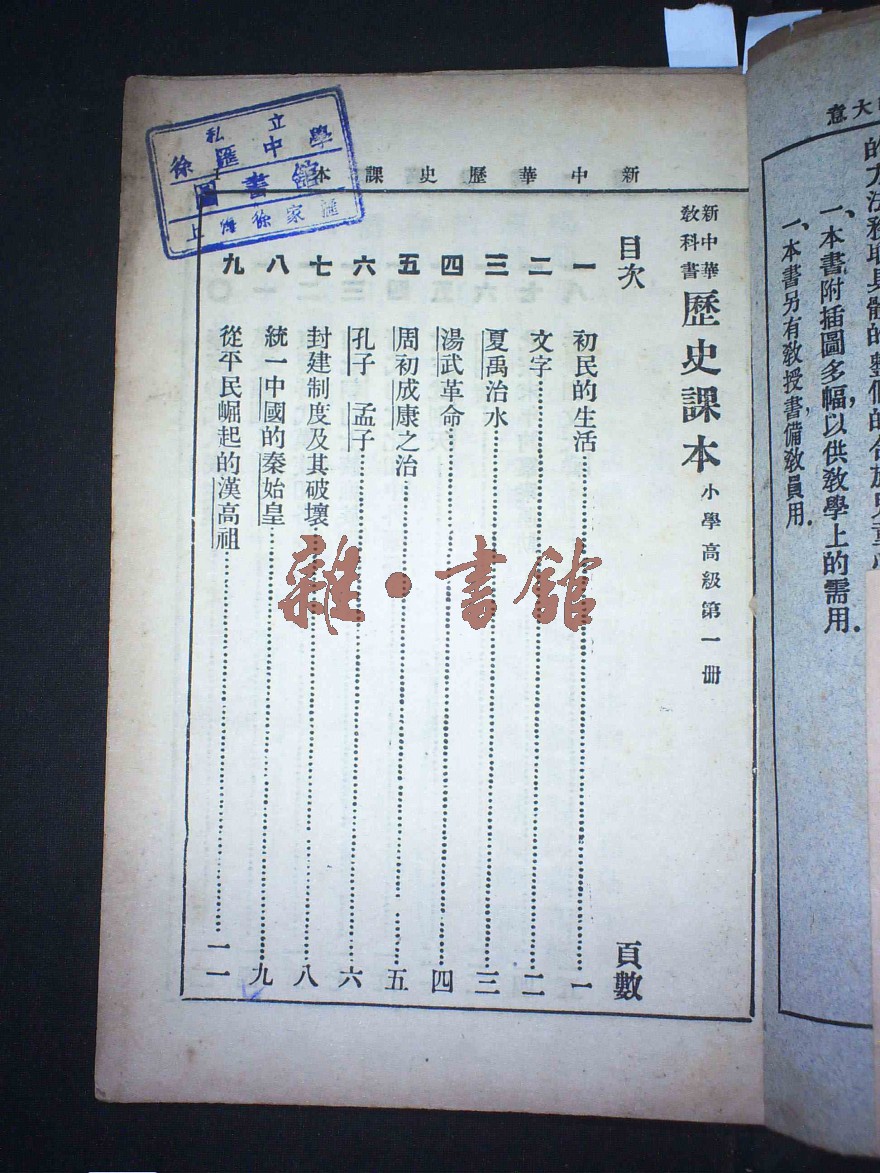 大意
的方法務取具體的整個的
一、本書附插圖多幅，以供教學上的需用．
一、本書另有教授書備教員用．
新中華歷史課本
私立
徐匯中學
圖書館
上海徐家匯
新中華
教科書
歷史課本 小學高級第一冊
目次 頁數
一 初民的生活 一
二 文字 二
三 夏禹治水 三
四 湯武革命 四
五 周初成康之治 五
六 孔子 孟子 六
七 封建制度及其破壞 八
八 統一中國的秦始皇 九
九 從平民崛起的漢高祖 一一
雜·書館